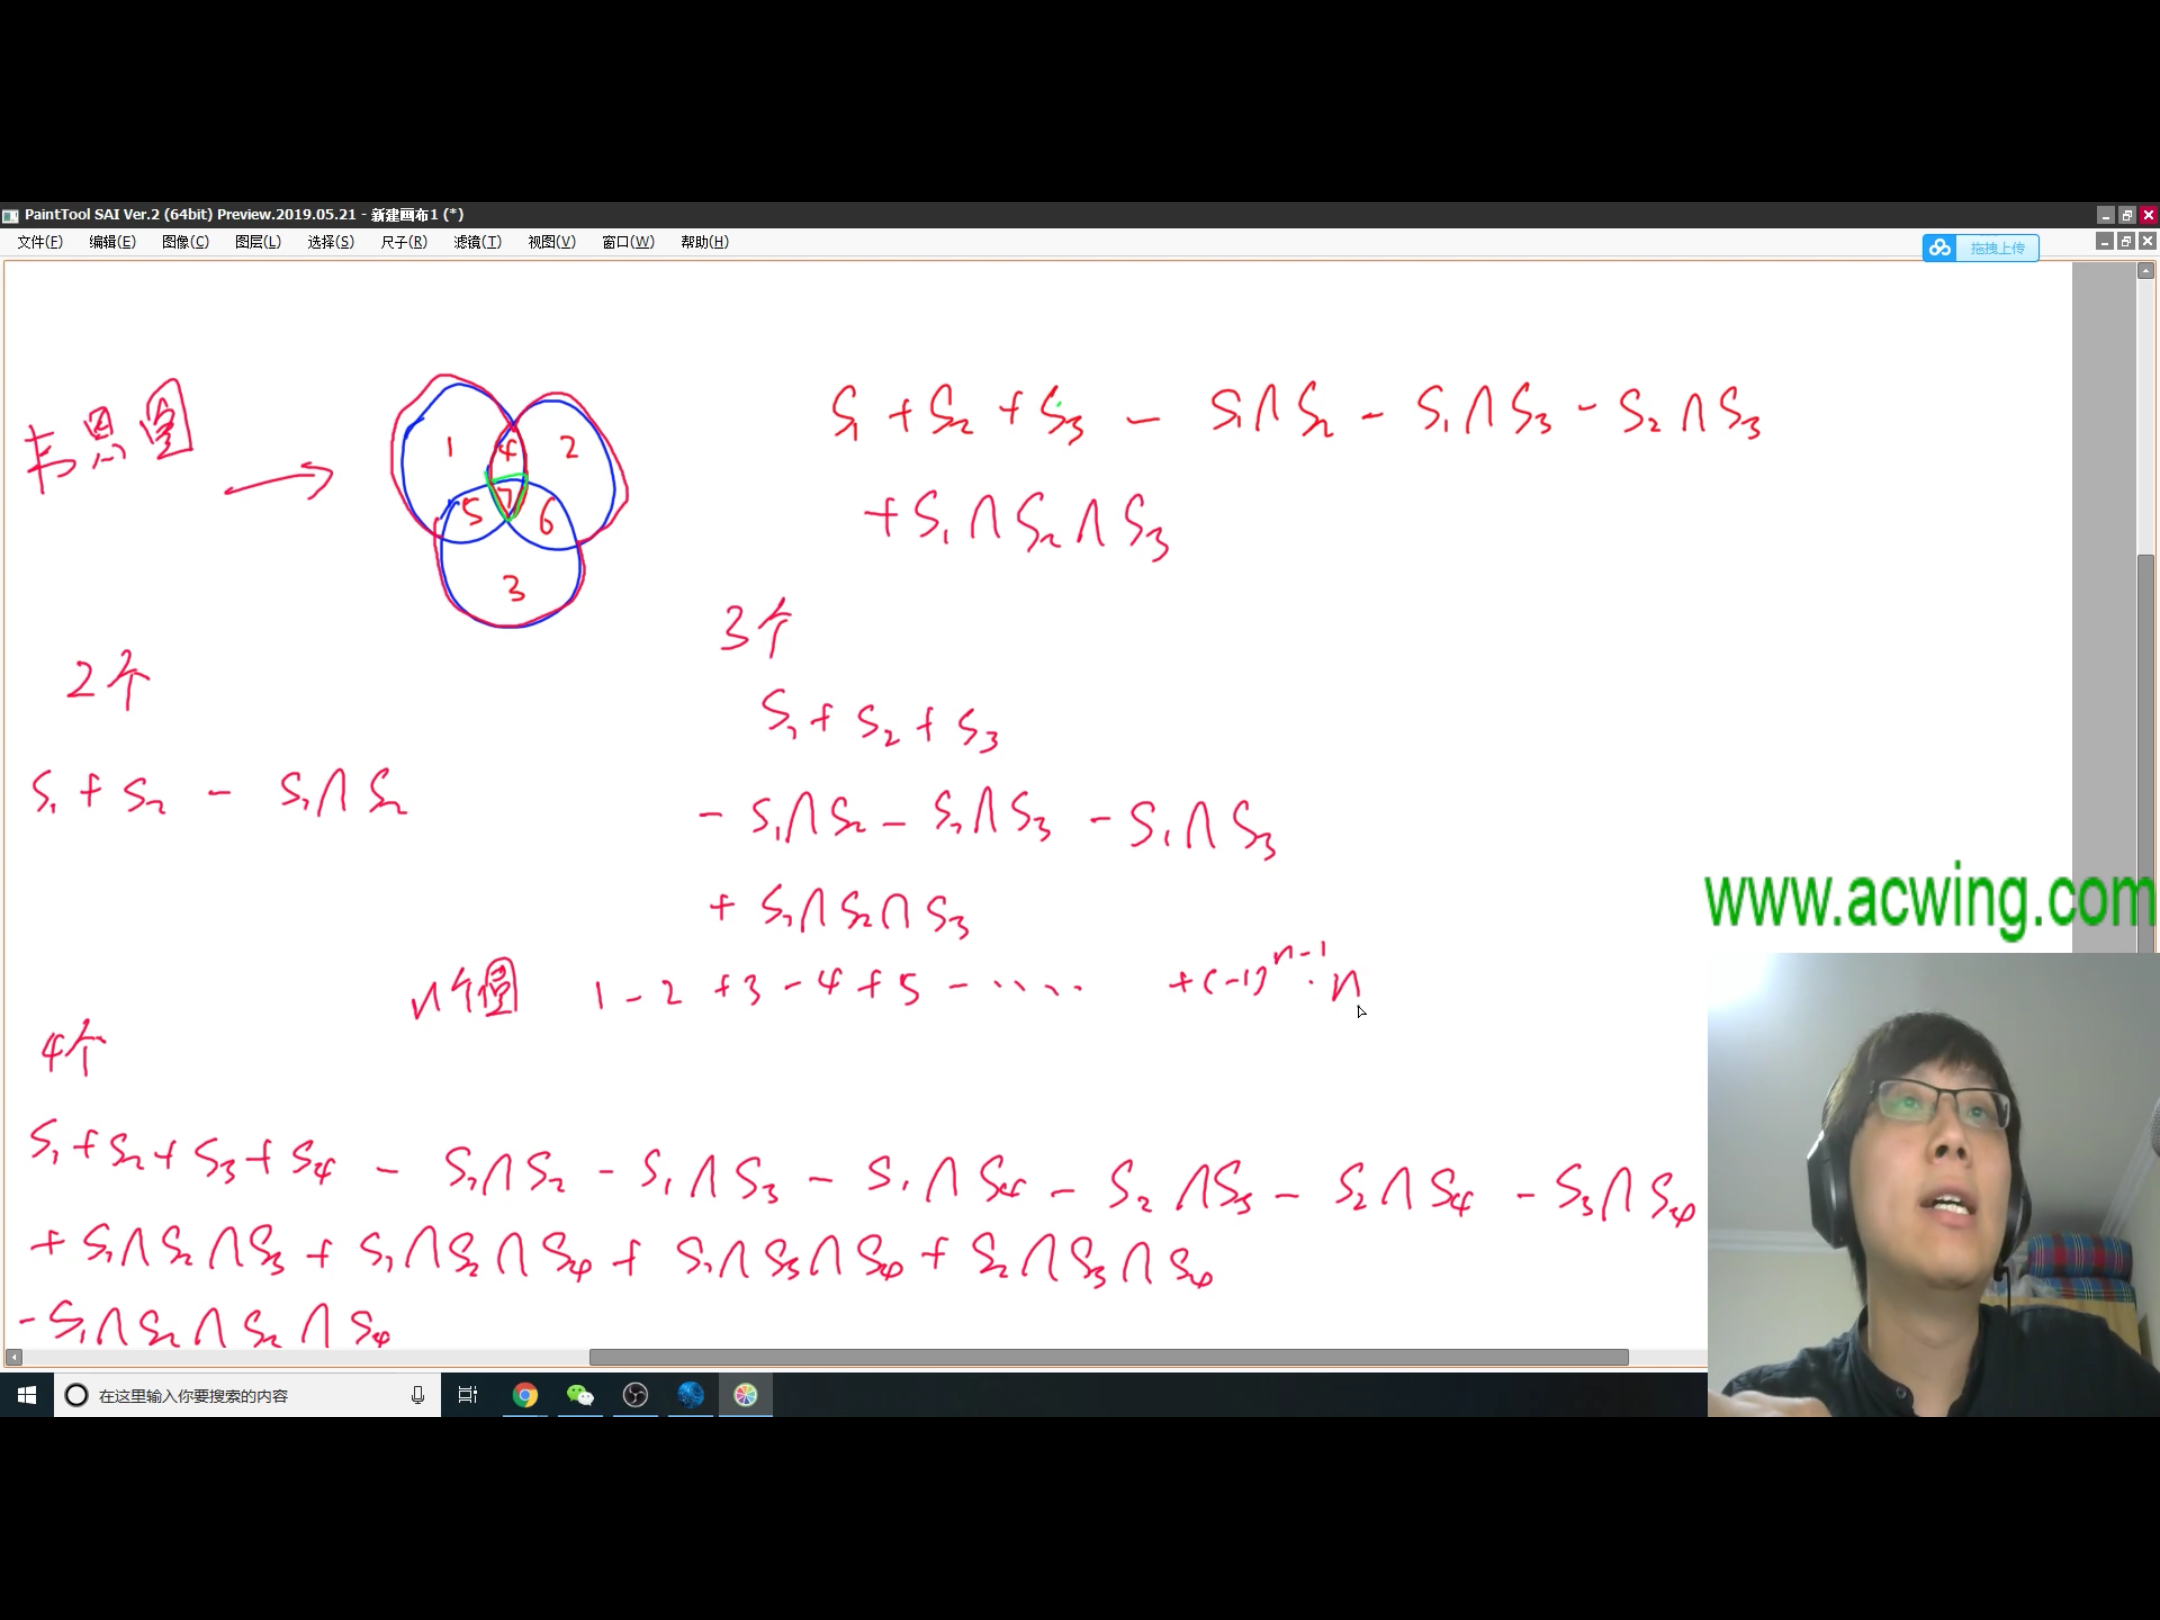 PaintTool SAI Ver.2 (64bit) Preview.2019.05.21 - 新建画布1 (*)
文件(F) 编辑(E) 图像(C) 图层(L) 选择(S) 尺子(R) 滤镜(T) 视图(V) 窗口(W) 帮助(H)
拖拽上传
韦恩图
1
4
2
5
7
6
3
S₁ + S₂ + S₃ - S₁∩S₂ - S₁∩S₃ - S₂∩S₃
+ S₁∩S₂∩S₃
2个
S₁ + S₂ - S₁∩S₂
3个
S₁ + S₂ + S₃
- S₁∩S₂ - S₂∩S₃ - S₁∩S₃
+ S₁∩S₂∩S₃
n个圆 1 - 2 + 3 - 4 + 5 - ····· + (-1)ⁿ⁻¹ · n
4个
S₁ + S₂ + S₃ + S₄ - S₁∩S₂ - S₁∩S₃ - S₁∩S₄ - S₂∩S₃ - S₂∩S₄ - S₃∩S₄
+ S₁∩S₂∩S₃ + S₁∩S₂∩S₄ + S₁∩S₃∩S₄ + S₂∩S₃∩S₄
- S₁∩S₂∩S₂∩S₄
www.acwing.com
在这里输入你要搜索的内容